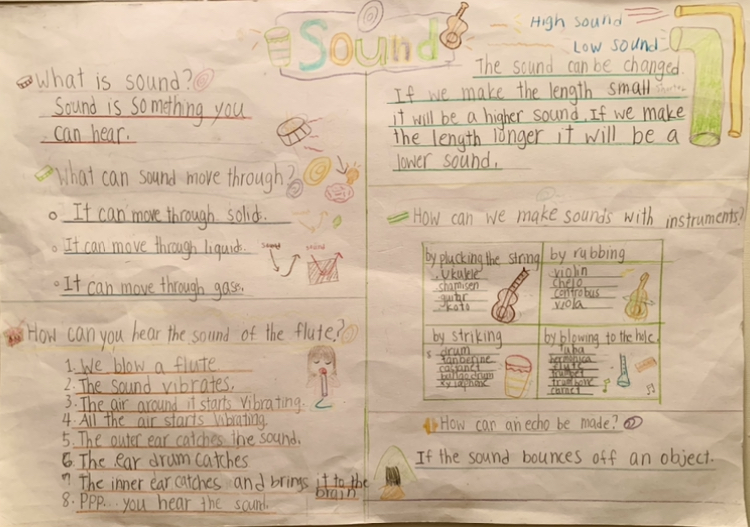 Sound
What is sound?
Sound is something you
can hear.
What can sound move through?
It can move through solid.
It can move through liquid.
It can move through gase.
sound
sound
How can you hear the sound of the flute?
1. We blow a flute
2. The sound vibrates.
3. The air around it starts vibrating.
4. All the air starts vibrating
5. The outer ear catches the sound.
6. The ear drum catches
7 The inner ear catches and brings it to the
brain
8. PPP... you hear the sound.
High sound
Low sound
The sound can be changed.
If we make the length small
it will be a higher sound. If we make
the length longer it will be a
lower sound.
How can we make sounds with instruments?
by plucking the string
ukulele
shamisen
guitar
koto
by rubbing
violin
chelo
contrabus
viola
by striking
drum
tanberine
castanet
xylaphone
by blowing to the hole.
harmonica
flute
trumpet
trombone
cornet
How can an echo be made?
If the sound bounces off an object.